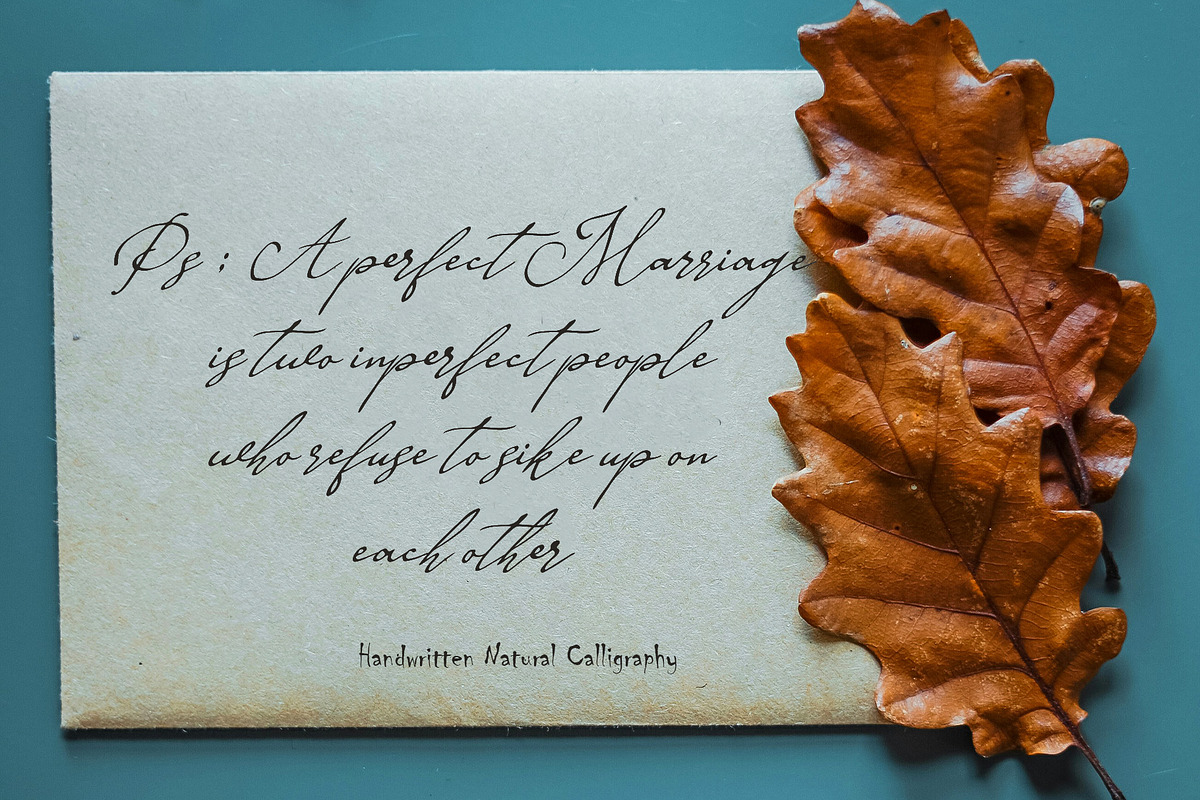 Ps : A perfect Marriage
is two inperfect people
who refuse to sike up on
each other
Handwritten Natural Calligraphy